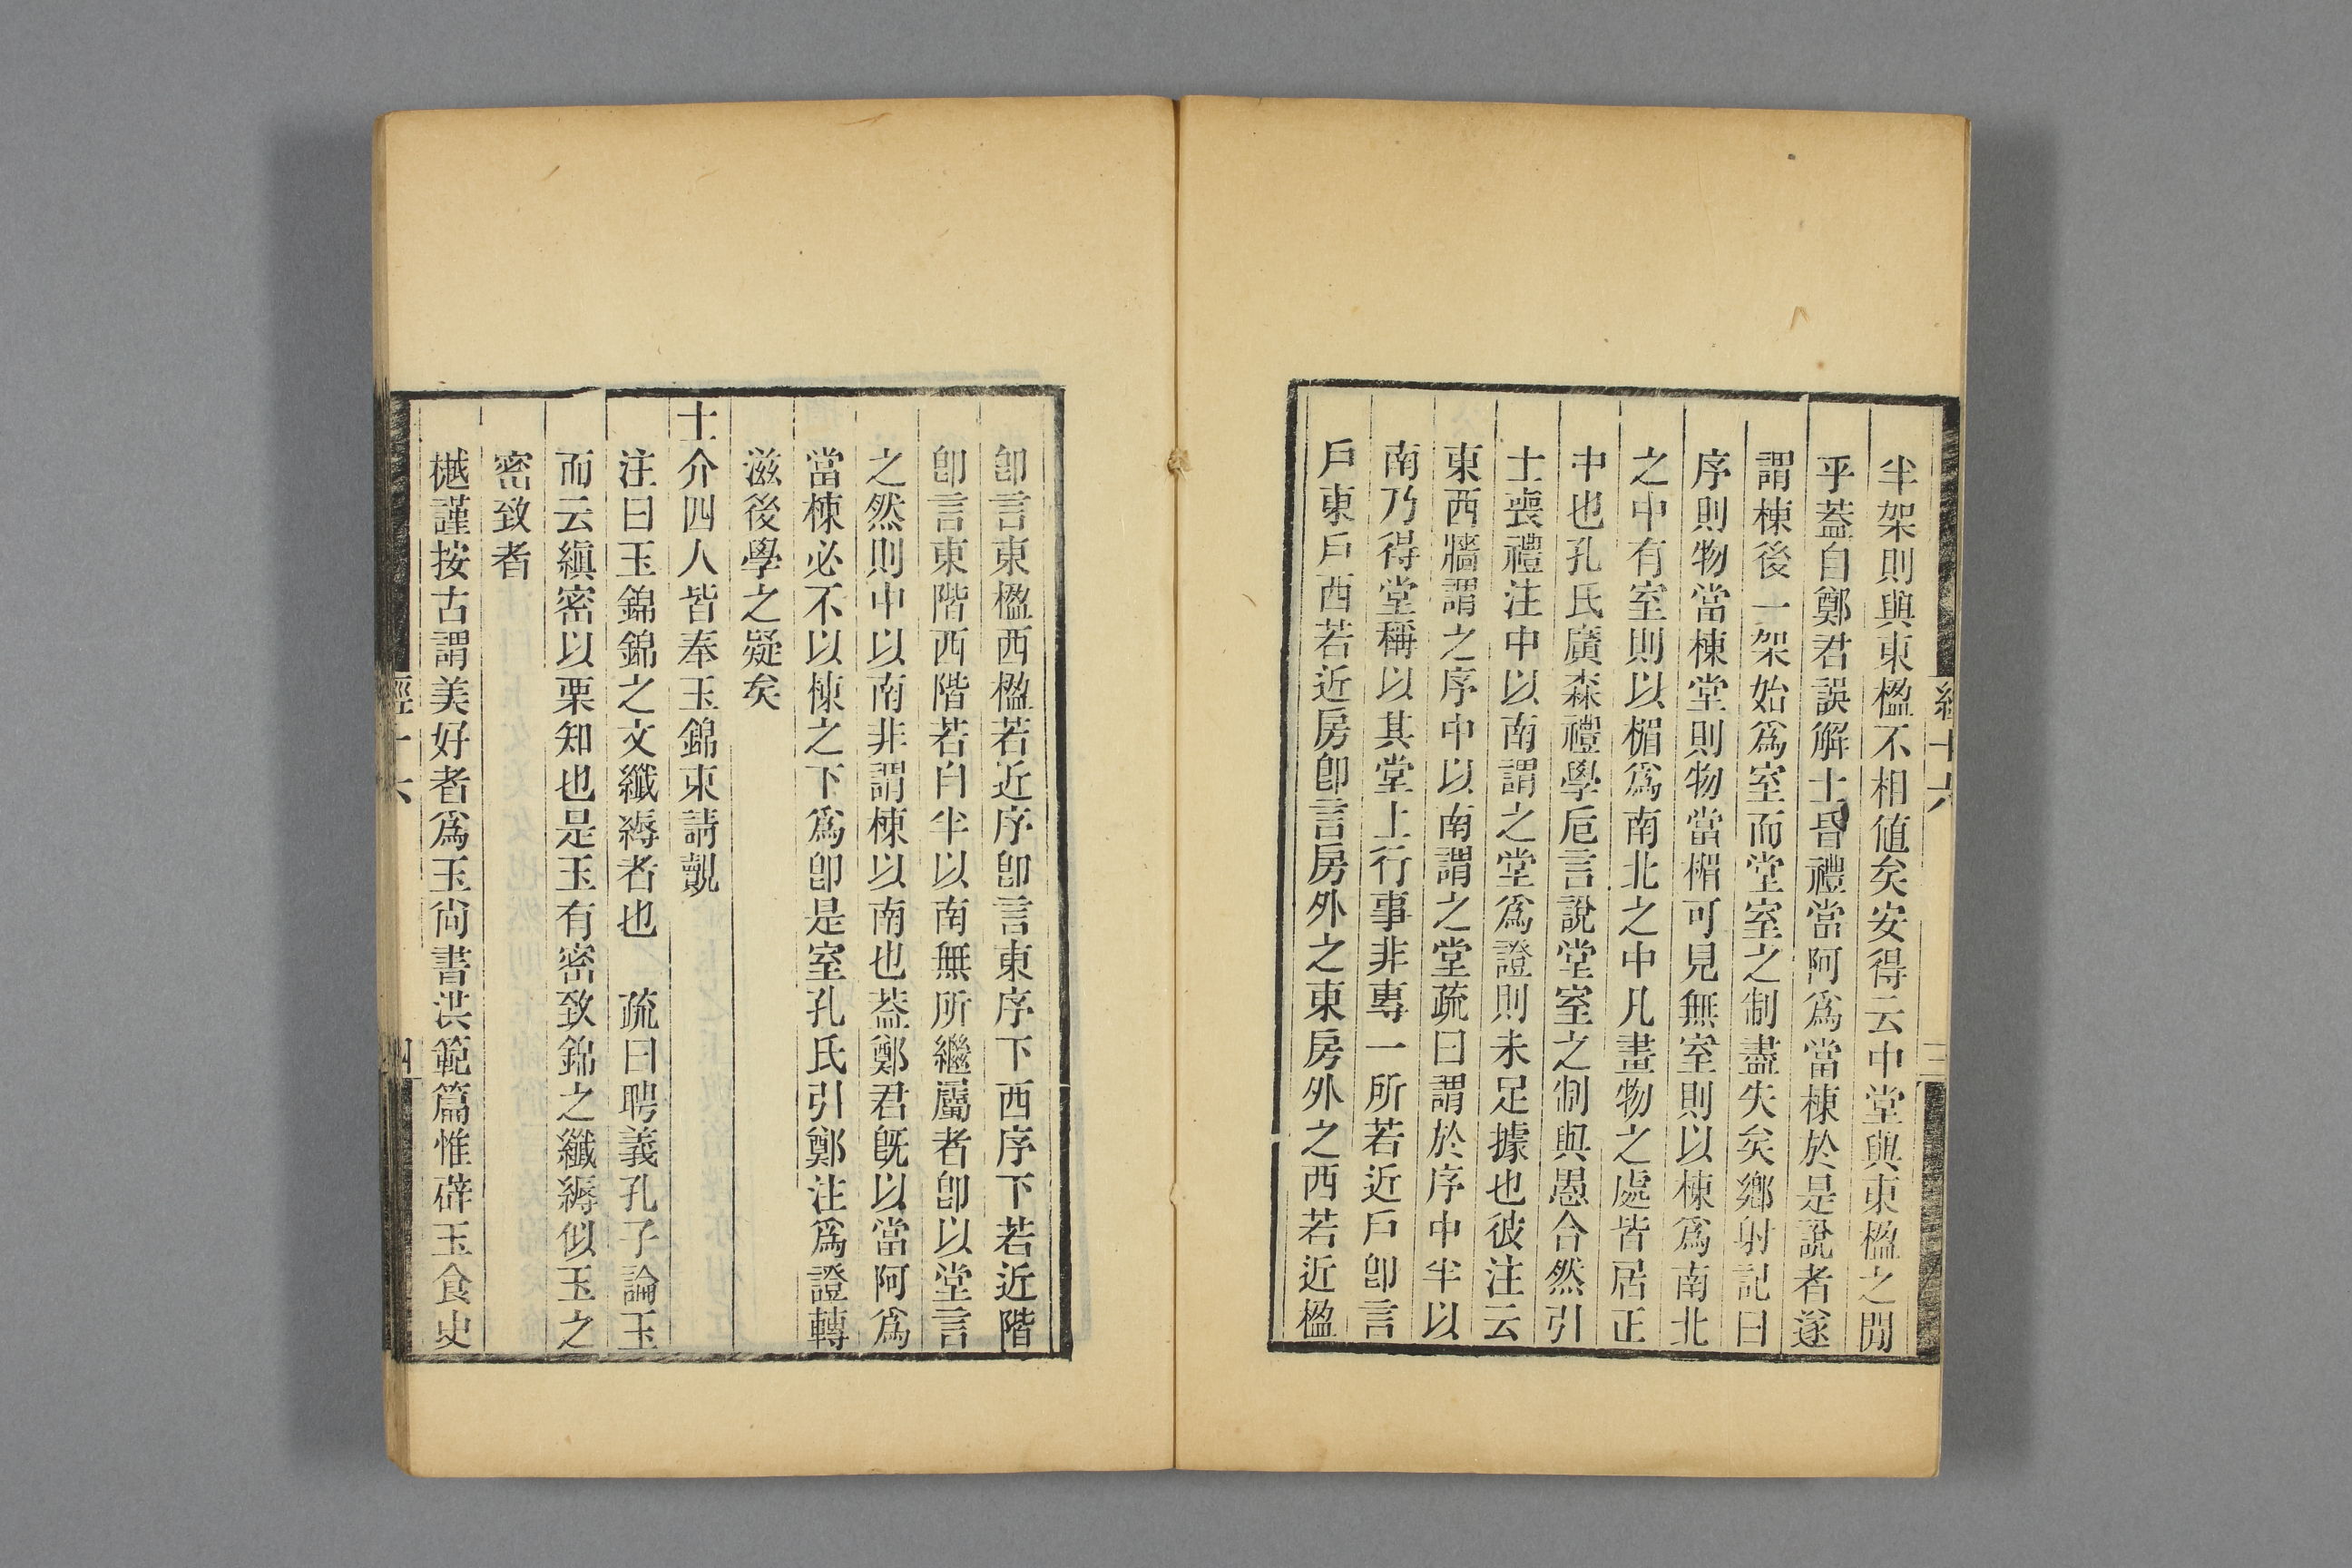 半架則與東楹不相値矣安得云中堂與東楹之閒
乎葢自鄭君誤解士昏禮當阿爲當棟於是說者遂
謂棟後一架始爲室而堂室之制盡失矣鄉射記曰
序則物當棟堂則物當楣可見無室則以棟爲南北
之中有室則以楣爲南北之中凡畫物之處皆居正
中也孔氏廣森禮學卮言說堂室之制與愚合然引
士喪禮注中以南謂之堂爲證則未足據也彼注云
東西牆謂之序中以南謂之堂疏曰謂於序中半以
南乃得堂稱以其堂上行事非專一所若近戶卽言
戶東戶西若近房卽言房外之東房外之西若近楹
卽言東楹西楹若近序卽言東序下西序下若近階
卽言東階西階若自半以南無所繼屬者卽以堂言
之然則中以南非謂棟以南也葢鄭君旣以當阿爲
當棟必不以棟之下爲卽是室孔氏引鄭注爲證轉
滋後學之疑矣
士介四人皆奉玉錦束請覿
注曰玉錦錦之文纖縟者也　疏曰聘義孔子論玉
而云縝密以栗知也是玉有密致錦之纖縟似玉之
密致者
樾謹按古謂美好者爲玉尙書洪範篇惟辟玉食史
經十六
四